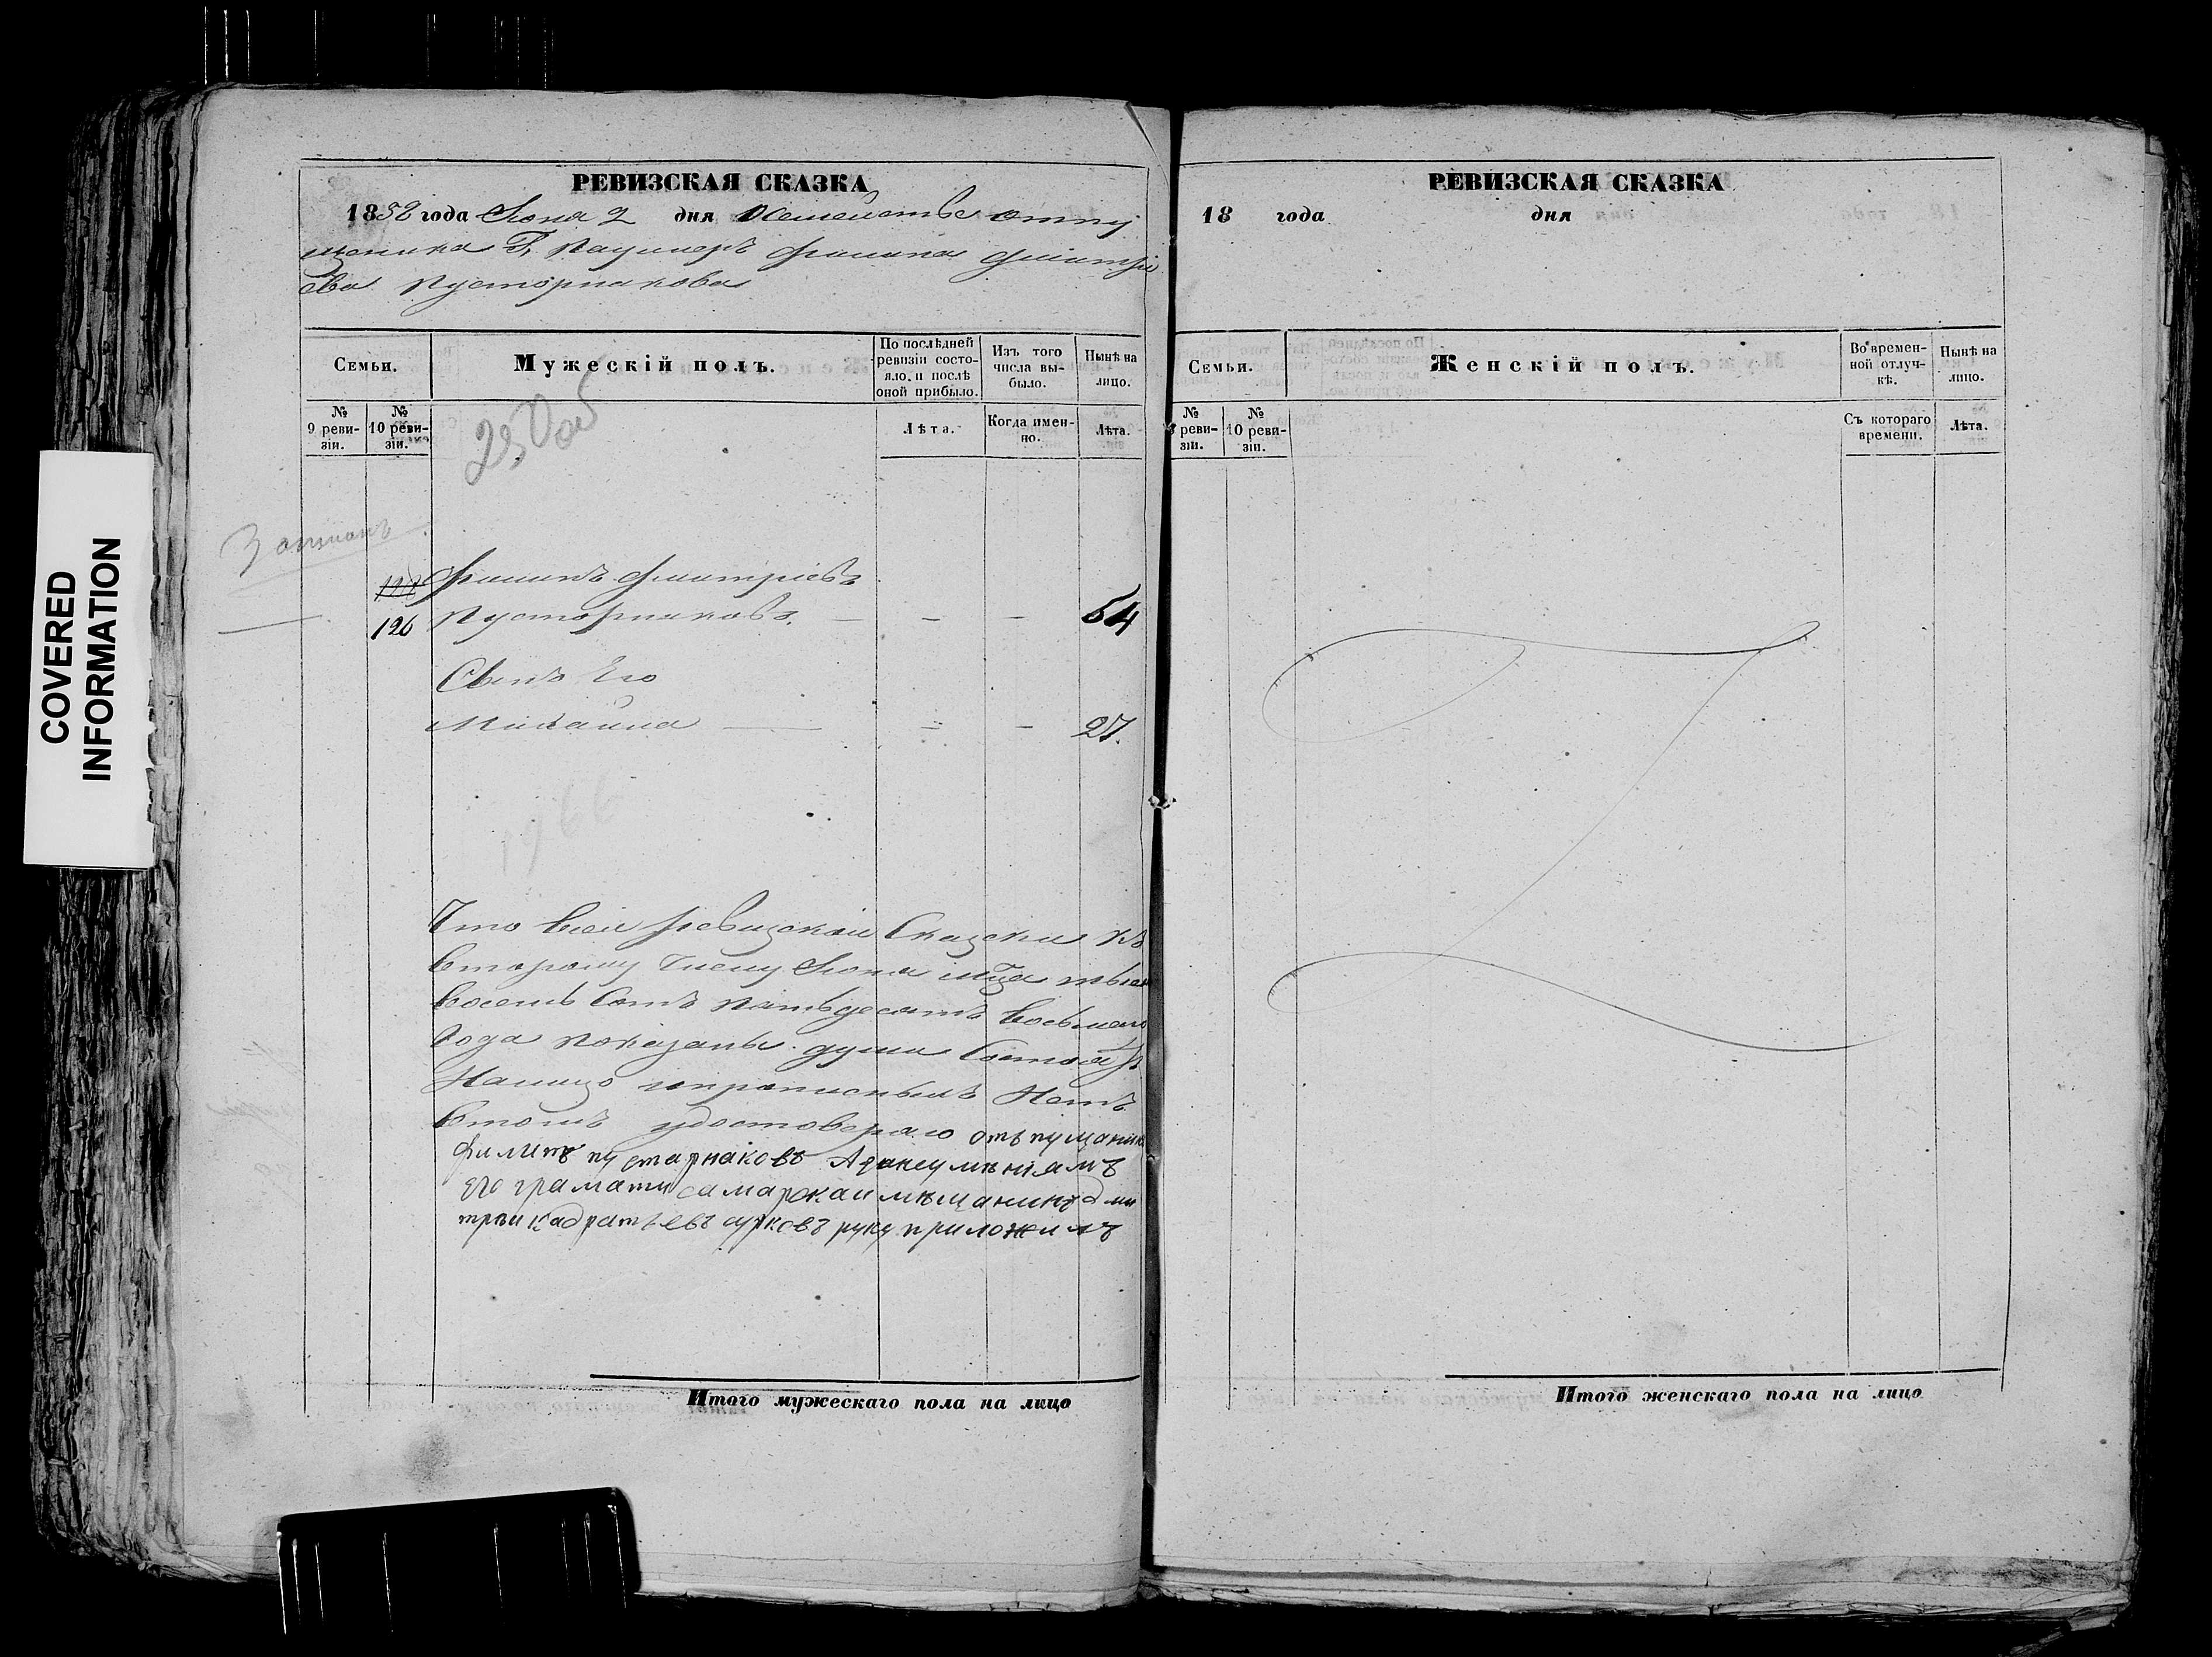 COVERED
INFORMATION
РЕВИЗСКАЯ СКАЗКА
1858 года Июня 2 дня О семействе отпу
щеника Г. Филипа Дмитрі
ева Пусторнакова
Семьи.
Мужескій полъ.
По послѣдней
ревизіи состо-
яло, и послѣ
оной прибыло.
Изъ того
числа вы-
было.
Нынѣ на
лицо.
№
9 реви-
зіи.
№
10 реви-
зіи.
Лѣта.
Когда имен-
но.
Лѣта.
126 Филипъ Дмитріевъ
Пусторнаковъ. — — — 54
Сынъ Его
Михаила — — — 27.
Что всей ревизской Сказки ко
второму числу Июня мца тысе
восемь Сотъ пятьдесятъ восьмаго
года показаны души Состоя
Налицо и прописныхъ Нетъ
втомъ удостоверяю отьпущаник
Филипъ пустарнаковъ Азанеуменіамъ
его грамати самарскаи мѣщанинъ дми
трѣи Кадратьевъ сурковъ руку приложилъ
Итого мужескаго пола на лицо
РЕВИЗСКАЯ СКАЗКА
18 года дня
Семьи.
Женскій полъ.
Во времен-
ной отлуч-
кѣ.
Нынѣ на
лицо.
№
реви-
зіи.
№
10 реви-
зіи.
Съ котораго
времени.
Лѣта.
Итого женскаго пола на лицо